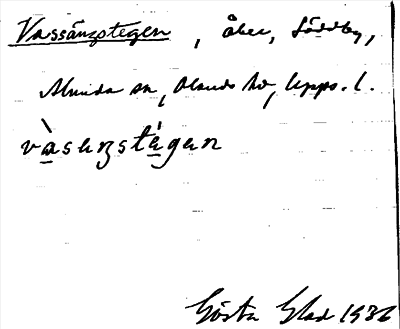 Vassängstegen, åker, Söddby,
Almunda sn, Olands hd, Upps. l.
vàsaŋstégen
Gösta Glad 1936